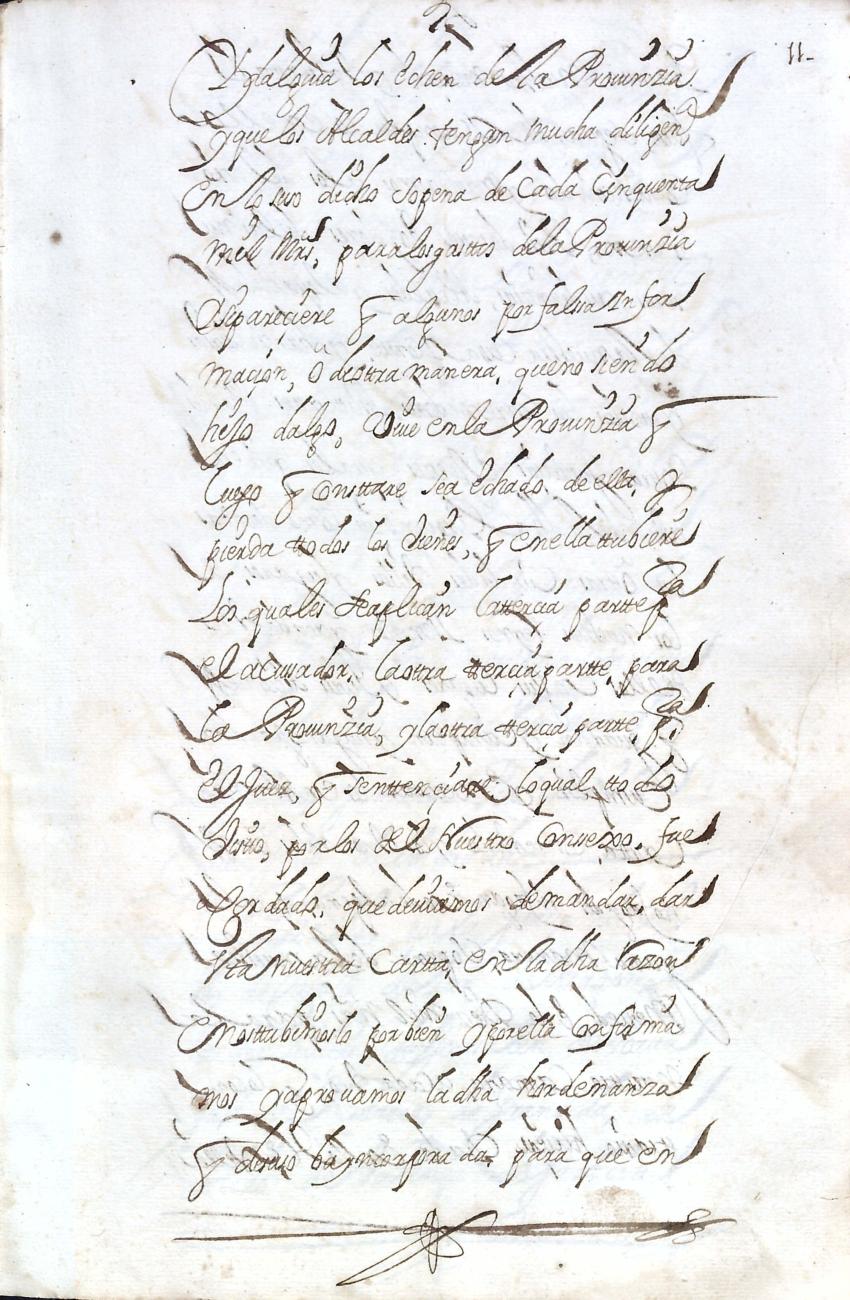 2
11-
hidalguia los echen de la Prouinzia
y que los Alcaldes tengan mucha diligen.ª
en lo suso dicho sopena de Cada Cinquenta
mil Mrs, para los gasttos de la Prouinzia
q algunos por falsa Infor
maçion, o de ottra manera, que no siendo
hijo dalgo, Viue en la Prouinzia q
luego q Consttare sea echado de ella, y
pierda ttodos los Vienes, q en ella ttubiere
Los quales se aplican la tterçia partte p.ra
el acusador, la ottra terçia partte, para
la Prouinzia, y la ottra terçia partte, p.ra
el Juez, q lo senttençiare lo qual ttodo
Visto, por los del Nuesttro Consexo, fue
acordado, que deuiamos de mandar, dar
estta nuestra Cartta, en la dha razon
e nos ttubimoslo por bien y por ella Confirma
mos y aprouamos la dha hordenanza
q de suso ba yncorporada, para que en